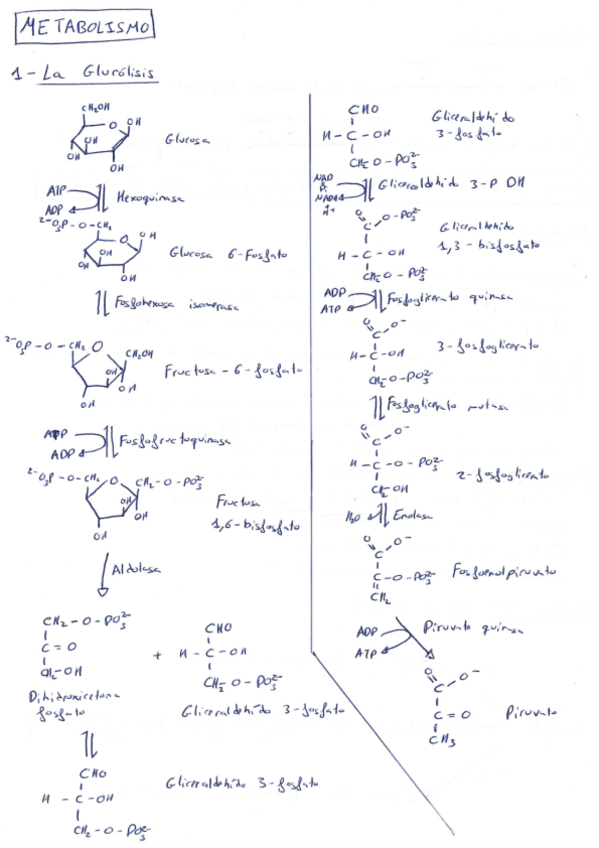 METABOLISMO
1- La Glucólisis
CH₂OH
O
OH
OH
OH
OH
Glucosa
ATP
ADP
Hexoquinasa
²⁻O₃P-O-CH₂
O
OH
OH
OH
OH
Glucosa 6-Fosfato
Fosfohexosa isomerasa
²⁻O₃P-O-CH₂
O
CH₂OH
OH
OH
OH
Fructosa-6-fosfato
ATP
ADP
Fosfofructoquinasa
²⁻O₃P-O-CH₂
O
CH₂-O-PO₃²⁻
OH
OH
OH
Fructosa
1,6-bisfosfato
Aldolasa
CH₂-O-PO₃²⁻
C=O
CH₂-OH
Dihidroxicetona
fosfato
+
CHO
H-C-OH
CH₂-O-PO₃²⁻
Gliceraldehído 3-fosfato
CHO
H-C-OH
CH₂-O-PO₃²⁻
Gliceraldehído 3-fosfato
CHO
H-C-OH
CH₂-O-PO₃²⁻
Gliceraldehído
3-fosfato
NAD
Pi
NADH
H⁺
Gliceraldehido 3-P DH
O
O-PO₃²⁻
C
H-C-OH
CH₂O-PO₃²⁻
Gliceraldehído
1,3-bisfosfato
ADP
ATP
Fosfoglicerato quinasa
O
O⁻
C
H-C-OH
CH₂-O-PO₃²⁻
3-fosfoglicerato
Fosfoglicerato mutasa
O
O⁻
C
H-C-O-PO₃²⁻
CH₂OH
2-fosfoglicerato
H₂O
Enolasa
O
O⁻
C
C-O-PO₃²⁻
CH₂
Fosfoenolpiruvato
ADP
ATP
Piruvato quinasa
O
O⁻
C
C=O
CH₃
Piruvato